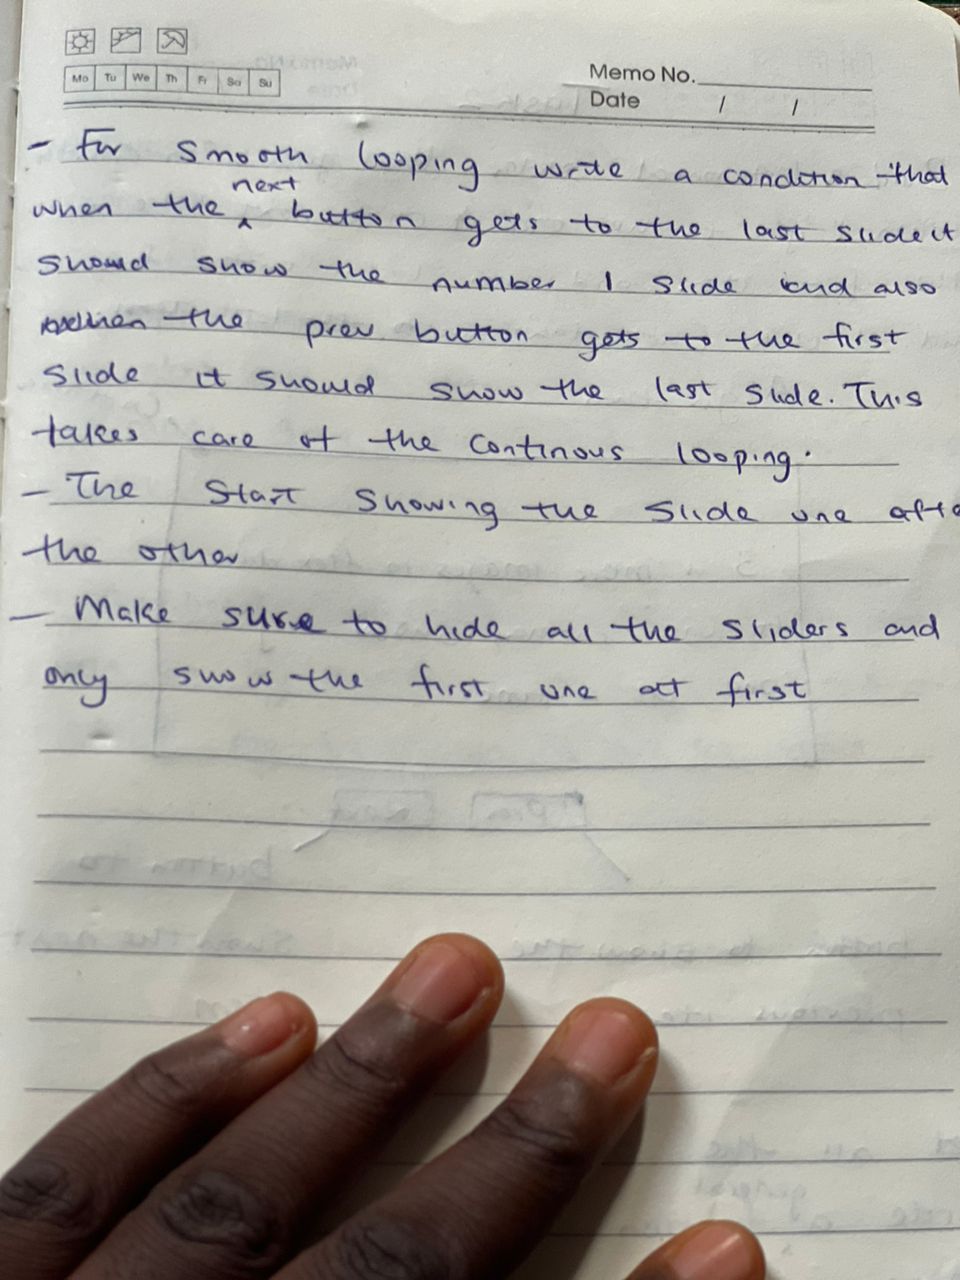 Mo Tu We Th Fr Sa Su
Memo No.
Date / /
- For smooth looping write a condition that
when the next button gets to the last slide it
should show the number 1 slide and also
when the prev button gets to the first
slide it should show the last slide. This
takes care of the continous looping.
- The start showing the slide one afte
the other
- Make sure to hide all the sliders and
only show the first one at first